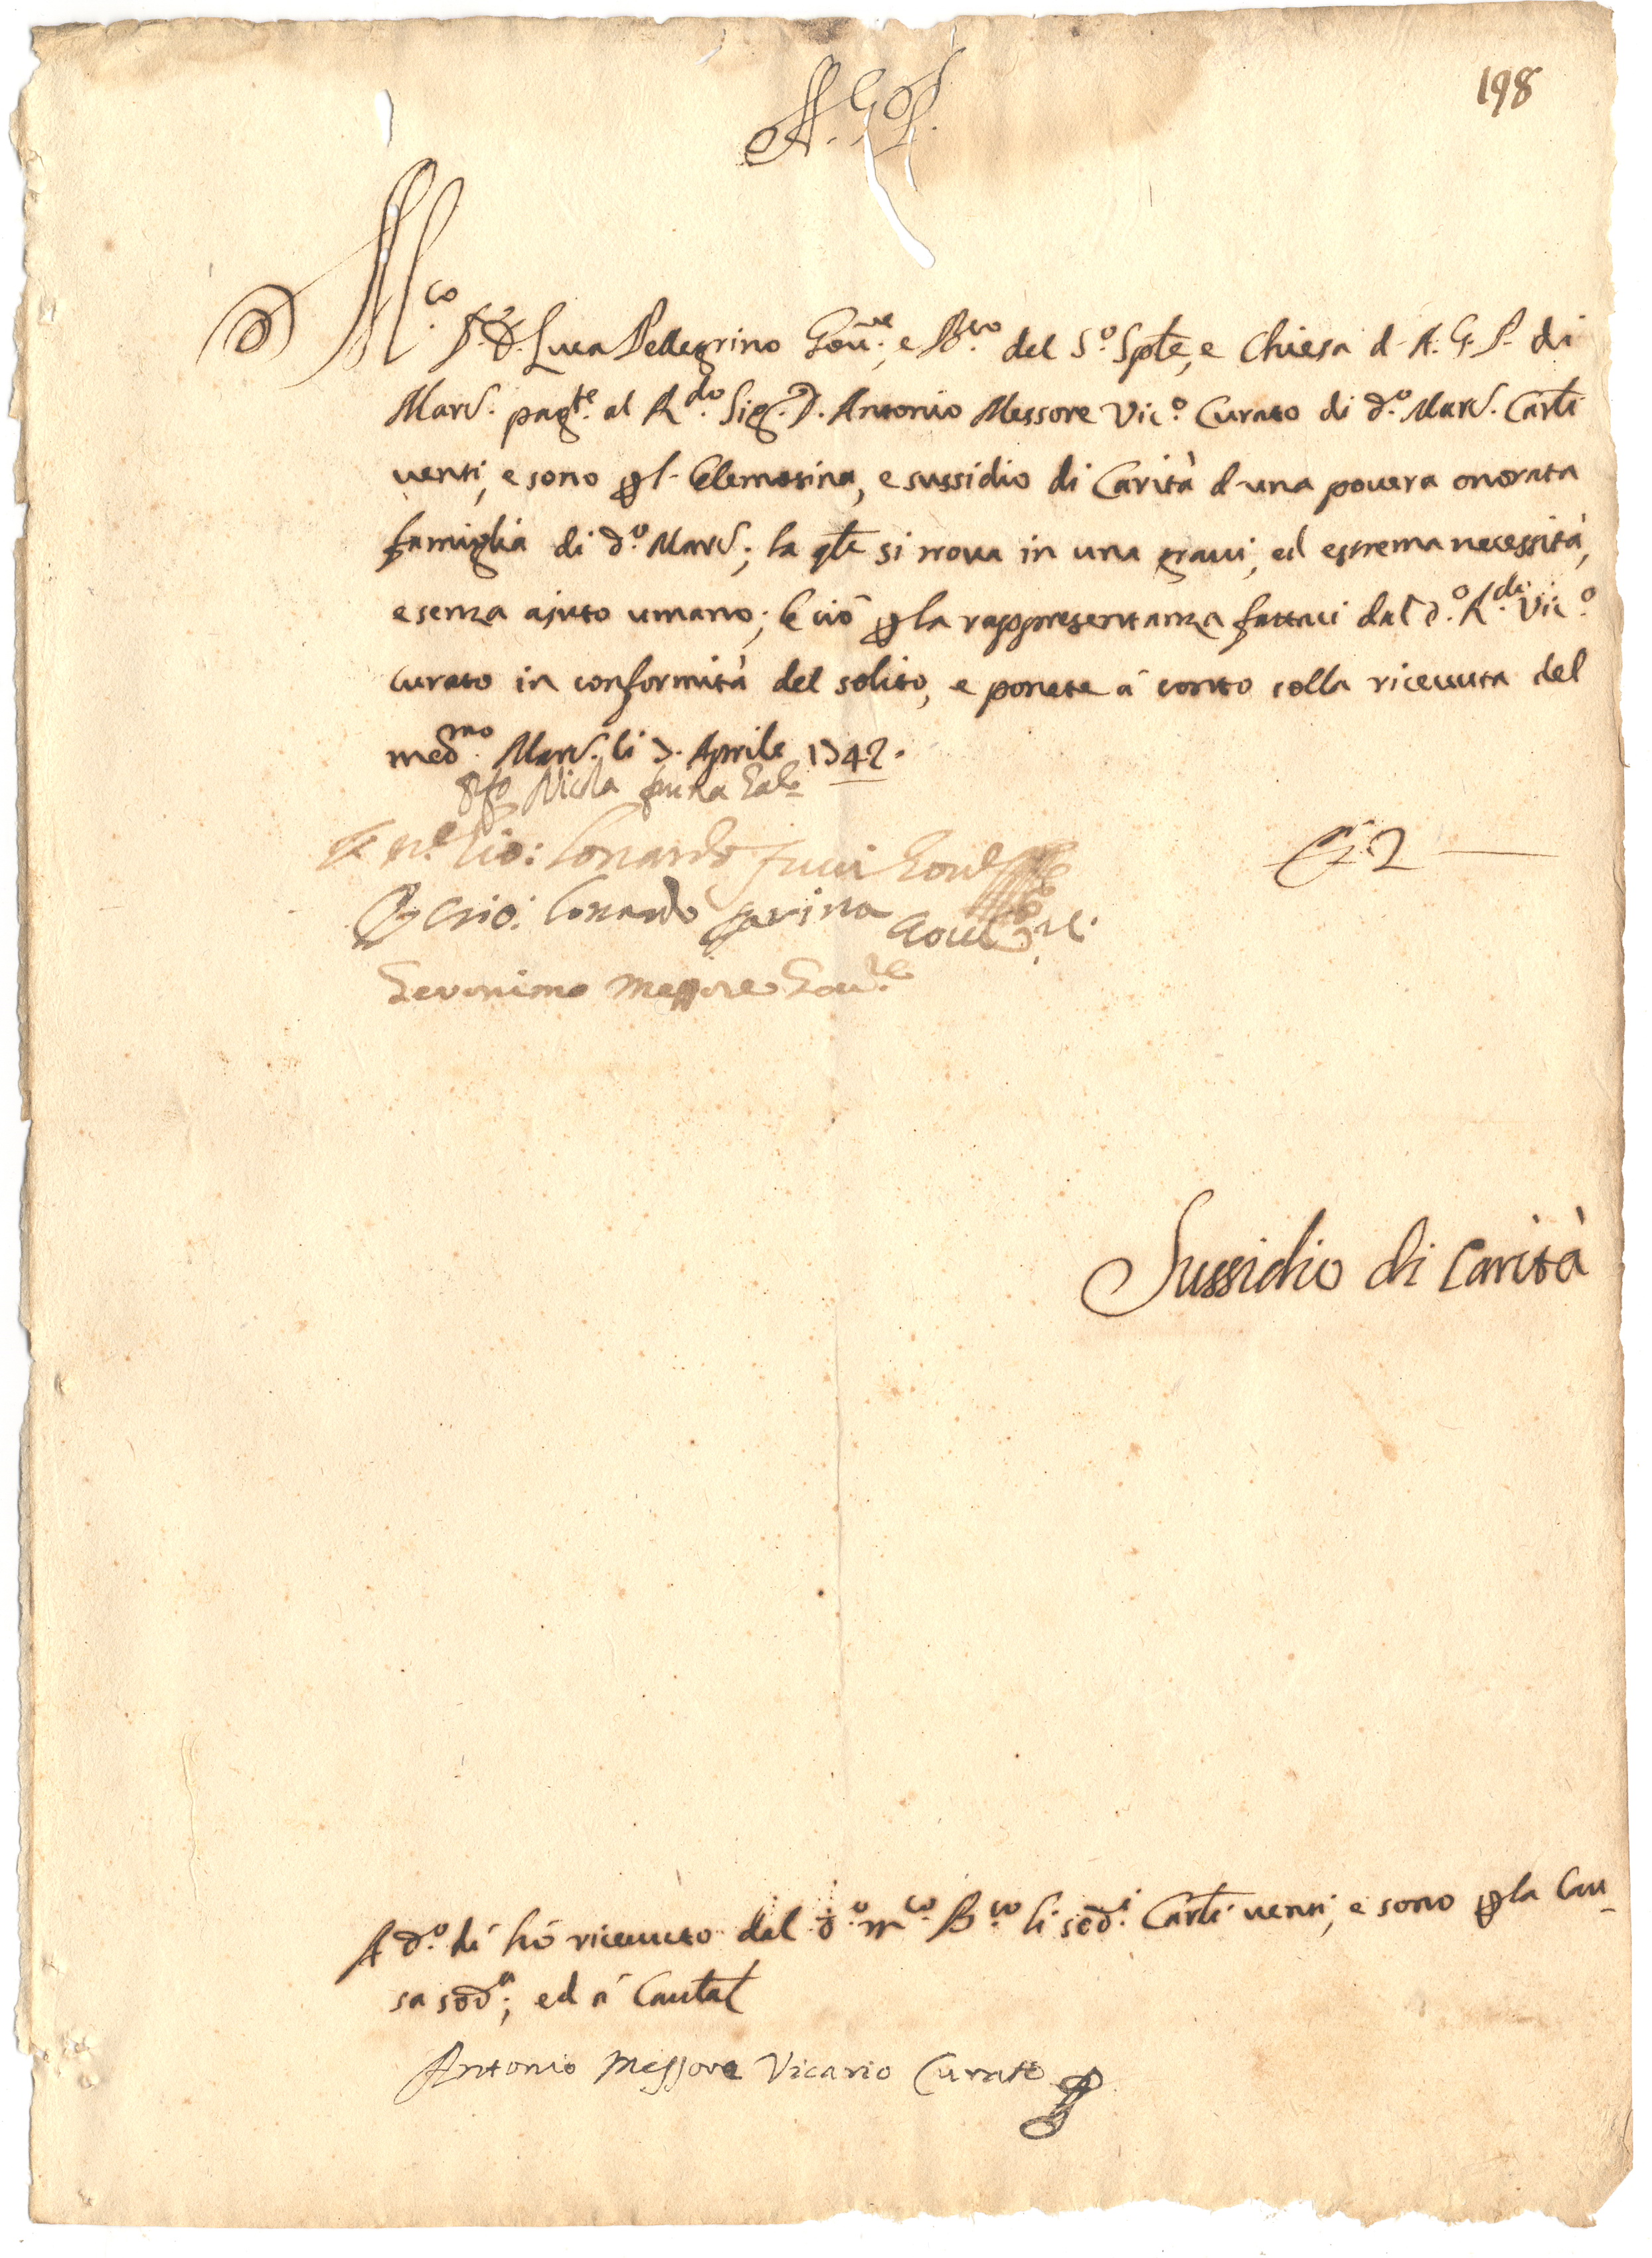 198
A. G. P.
M.co S.r D. Luca Pellegrino Gov.re, e B.ro del S.o Sple, e Chiesa d- A. G. P. di
Marc. pagte. al R.do Sig. D. Antonio Messore Vic.o Curato di d.o Marc. Carli
venti, e sono p l- Elemosina, e sussidio di Carità d-una povera onorata
famiglia di d.o Marc.; la qle si trova in una gravi, ed estrema necessità,
e senza ajuto umano; E ciò p la rappresentanza fattaci dal d.o R.do Vic.o
curato in conformità del solito, e ponete à conto colla ricevuta del
med.mo Marc. li 7. Aprile 1742.
Nicla
Gio: Lonardo
Lonardo farina
Geronimo Messore Gov.re
2
Sussidio di Carità
A d.o dì hò ricevuto dal d.o m.co B.ro li sod.i Carli venti, e sono p la Cau-
sa sod.a; ed à Cautal
Antonio Messore Vicario Curato